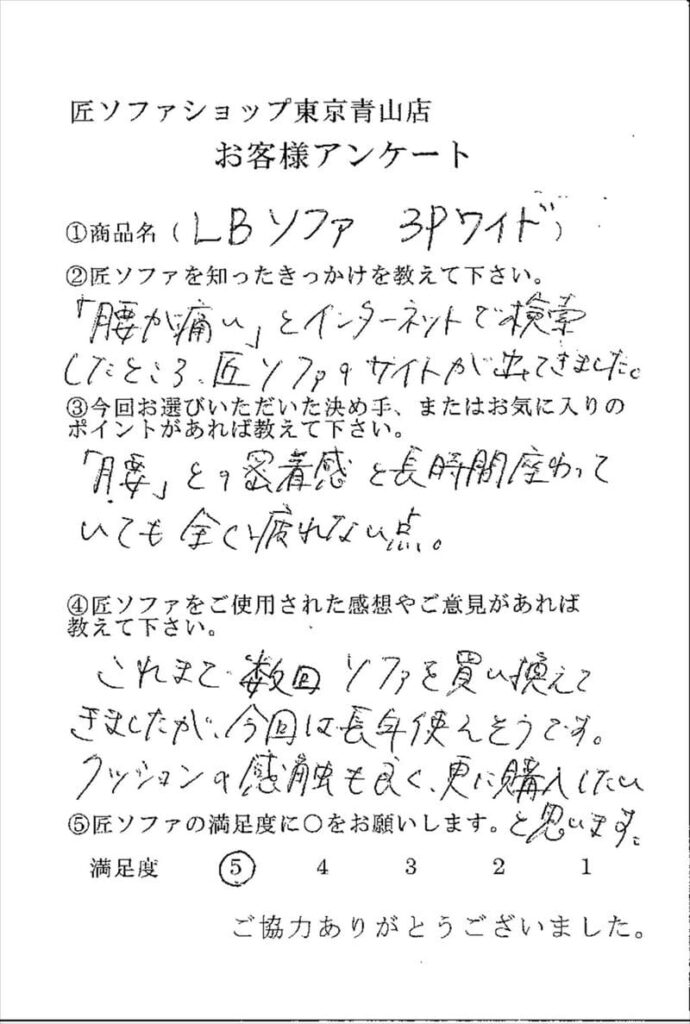 匠ソファショップ東京青山店
お客様アンケート
①商品名（ＬＢソファ　３Ｐワイド）
②匠ソファを知ったきっかけを教えて下さい。
「腰が痛い」とインターネットで検索
したところ、匠ソファのサイトが出てきました。
③今回お選びいただいた決め手、またはお気に入りの
ポイントがあれば教えて下さい。
「腰」との密着感と長時間座わって
いても全く疲れない点。
④匠ソファをご使用された感想やご意見があれば
教えて下さい。
これまで数回ソファを買い換えて
きましたが、今回は長年使えそうです。
クッションの感触も良く、更に購入したい
と思います。
⑤匠ソファの満足度に○をお願いします。
満足度　⑤　4　3　2　1
ご協力ありがとうございました。